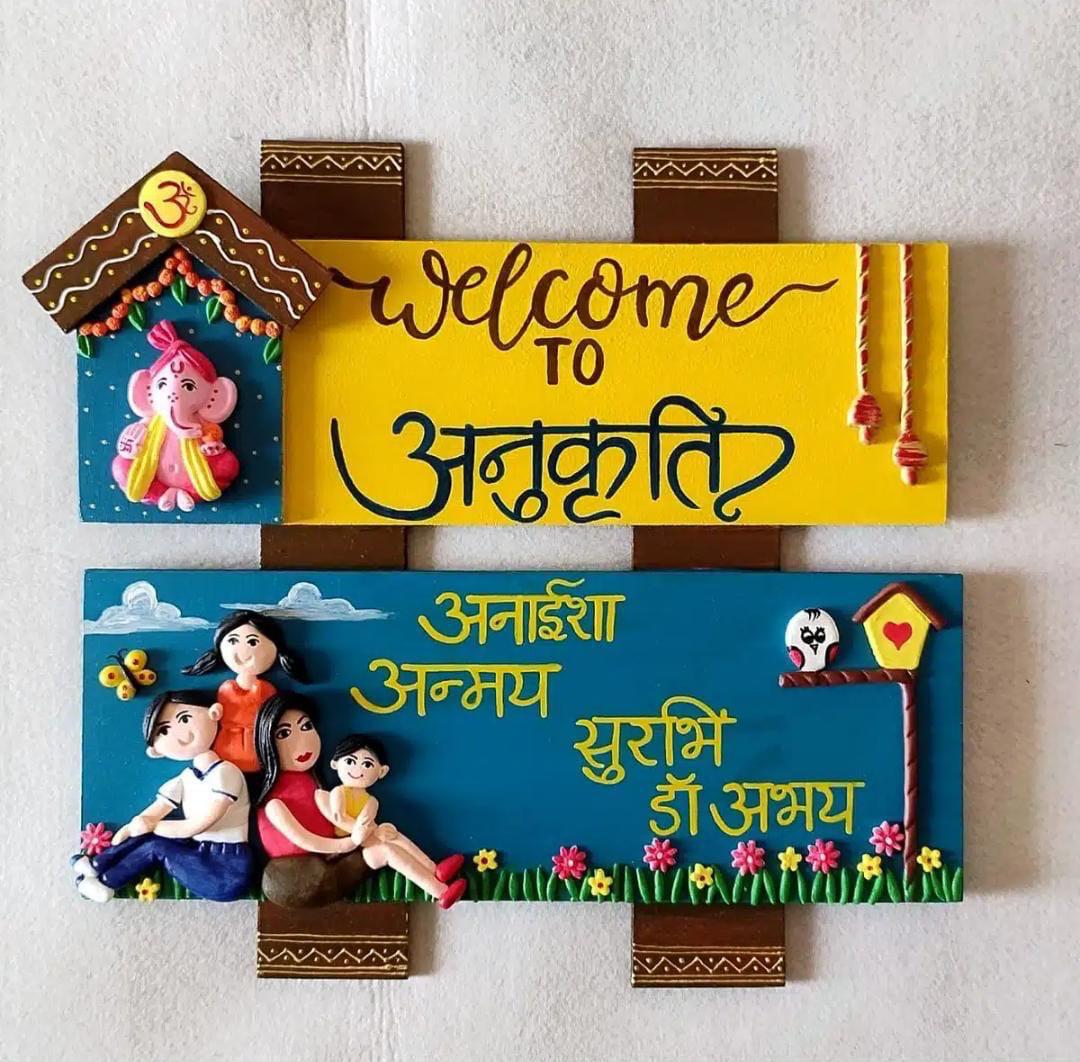 ॐ
welcome
TO
अनुकृति
अनाईशा
अन्मय
सुरभि
डॉ अभय